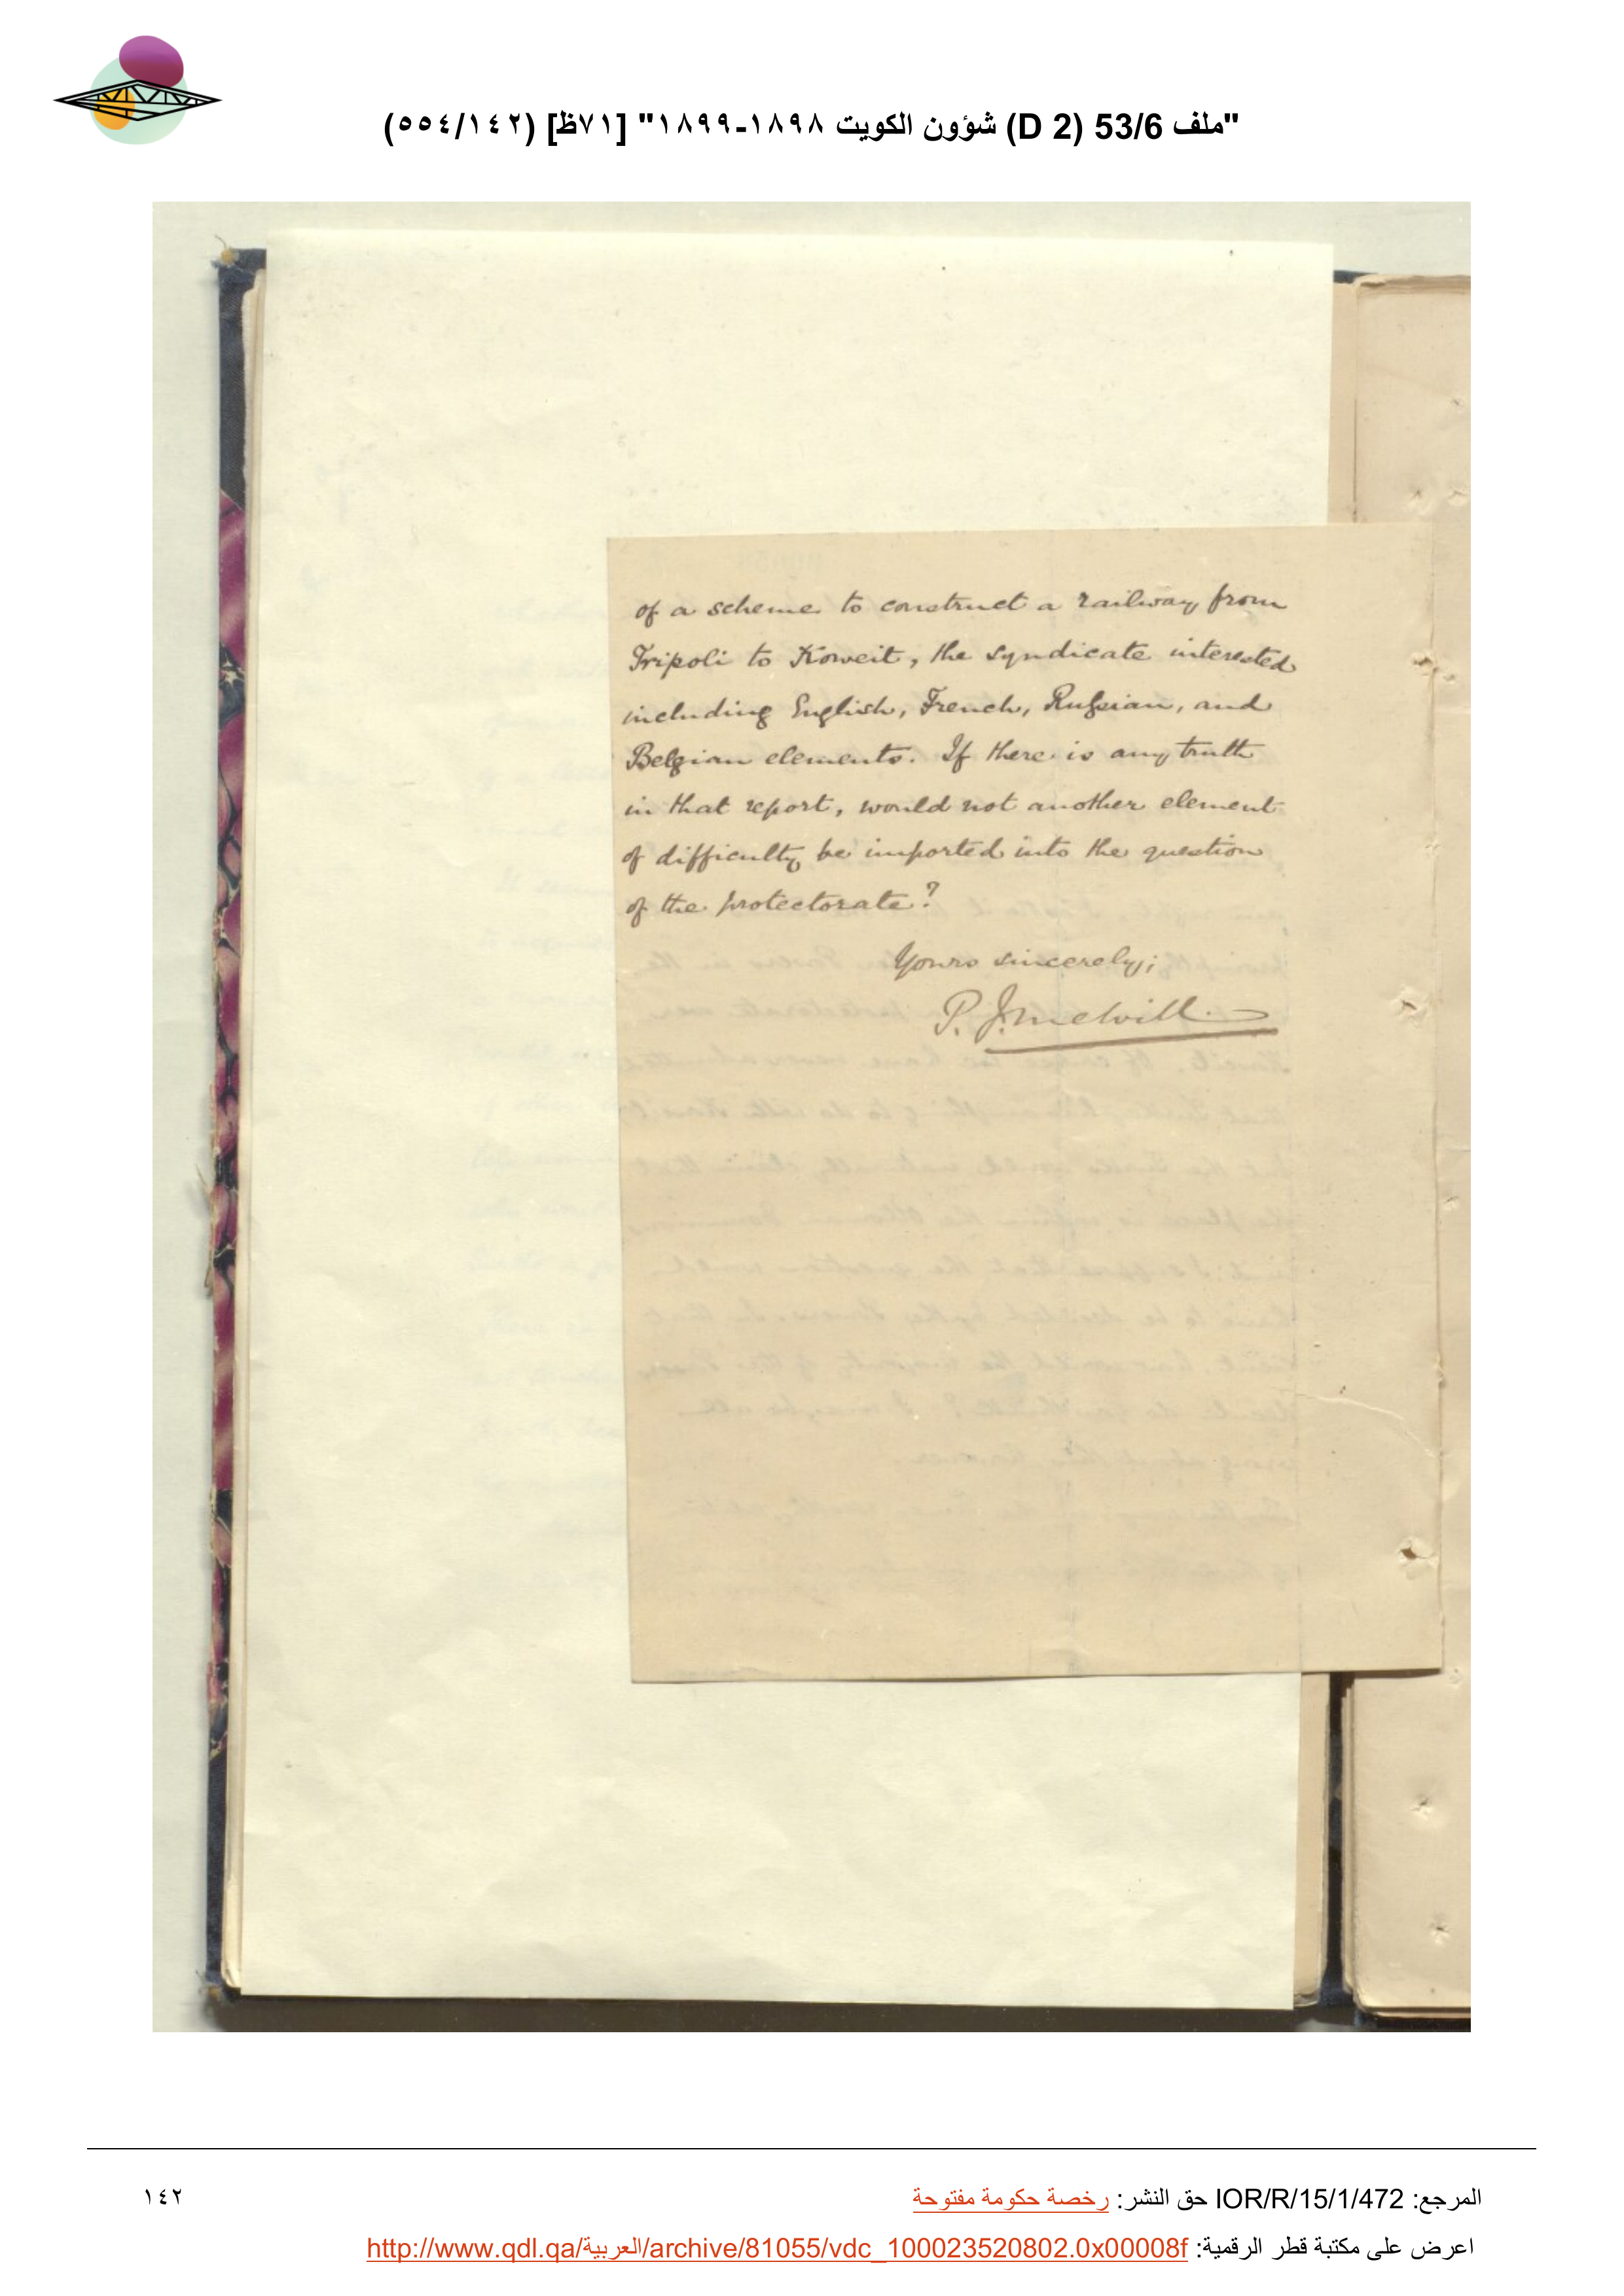 "ملف 53/6 (D 2) شؤون الكويت ١٨٩٨-١٨٩٩" [٧١ظ] (٥٥٤/١٤٢)
of a scheme to construct a railway from
Tripoli to Koweit, the syndicate interested
including English, French, Russian, and
Belgian elements. If there is any truth
in that report, would not another element
of difficulty be imported into the question
of the protectorate?
Yours sincerely,
P. J. Melvill.
المرجع: IOR/R/15/1/472 حق النشر: رخصة حكومة مفتوحة
١٤٢
اعرض على مكتبة قطر الرقمية: http://www.qdl.qa/العربية/archive/81055/vdc_100023520802.0x00008f